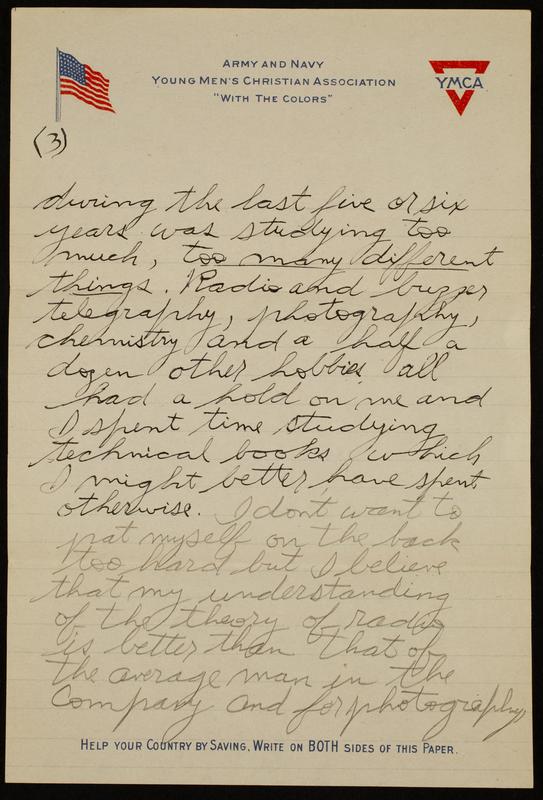 ARMY AND NAVY
YOUNG MEN'S CHRISTIAN ASSOCIATION
"WITH THE COLORS"
YMCA
(3)
during the last five or six
years was studying too
much, too many different
things. Radio and buzzer
telegraphy, photography,
chemistry and a half a
dozen other hobbies all
had a hold on me and
I spent time studying
technical books which
I might better have spent
otherwise. I don't want to
pat myself on the back
too hard but I believe
that my understanding
of the theory of radio
is better than that of
the average man in the
Company and for photography,
HELP YOUR COUNTRY BY SAVING, WRITE ON BOTH SIDES OF THIS PAPER.